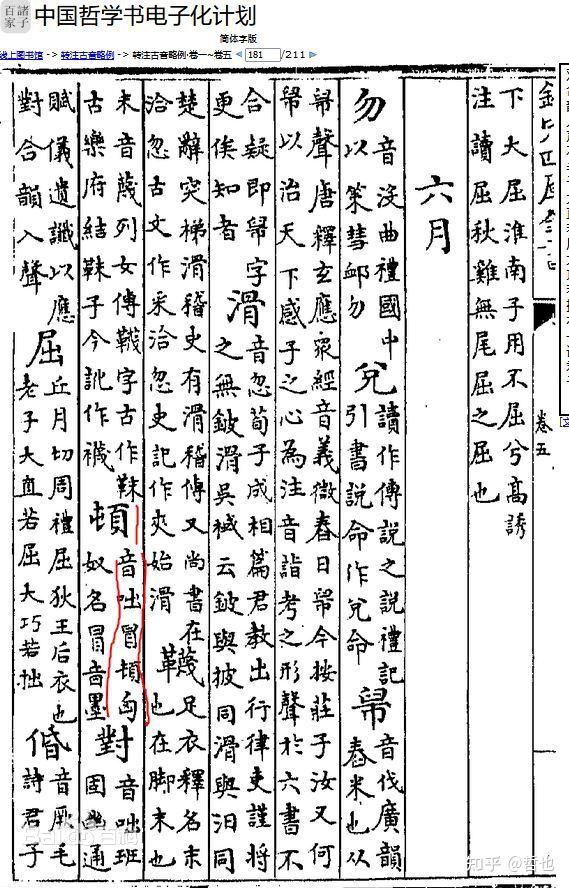 中国哲学书电子化计划
简体字版
线上图书馆 -> 转注古音略例 -> 转注古音略例·卷一~卷五 181 /211
卷五
下大屈淮南子用不屈兮高誘
注讀屈秋雞無尾屈之屈也
六月
勿 音没曲禮國中以策彗卹勿 兌 讀作傳說之說禮記引書說命作兌命 帠 音伐廣韻舂米也从
帠聲唐釋玄應衆經音義微舂曰帠今按莊子汝又何
帠以治天下感予之心為注音詣考之形聲於六書不
合疑即帠字更俟知者 滑 音忽荀子成相篇君教出行律吏謹將之無鈹滑吳棫云鈹與披同滑與汨同
楚辭突梯滑稽史有滑稽傳又尚書在洽忽古文作采洽忽史記作來始滑 韈 足衣釋名末也在脚末也
末音蔑列女傳韈字古作韎古樂府結韎子今訛作襪 頓 音咄冒頓匈奴名冒音墨 對 音咄班固幽通
賦儀遺讖以應對合韻入聲 屈 丘月切周禮屈狄王后衣也老子大直若屈大巧若拙 㑮 音厥毛詩君子
知乎 @哲也